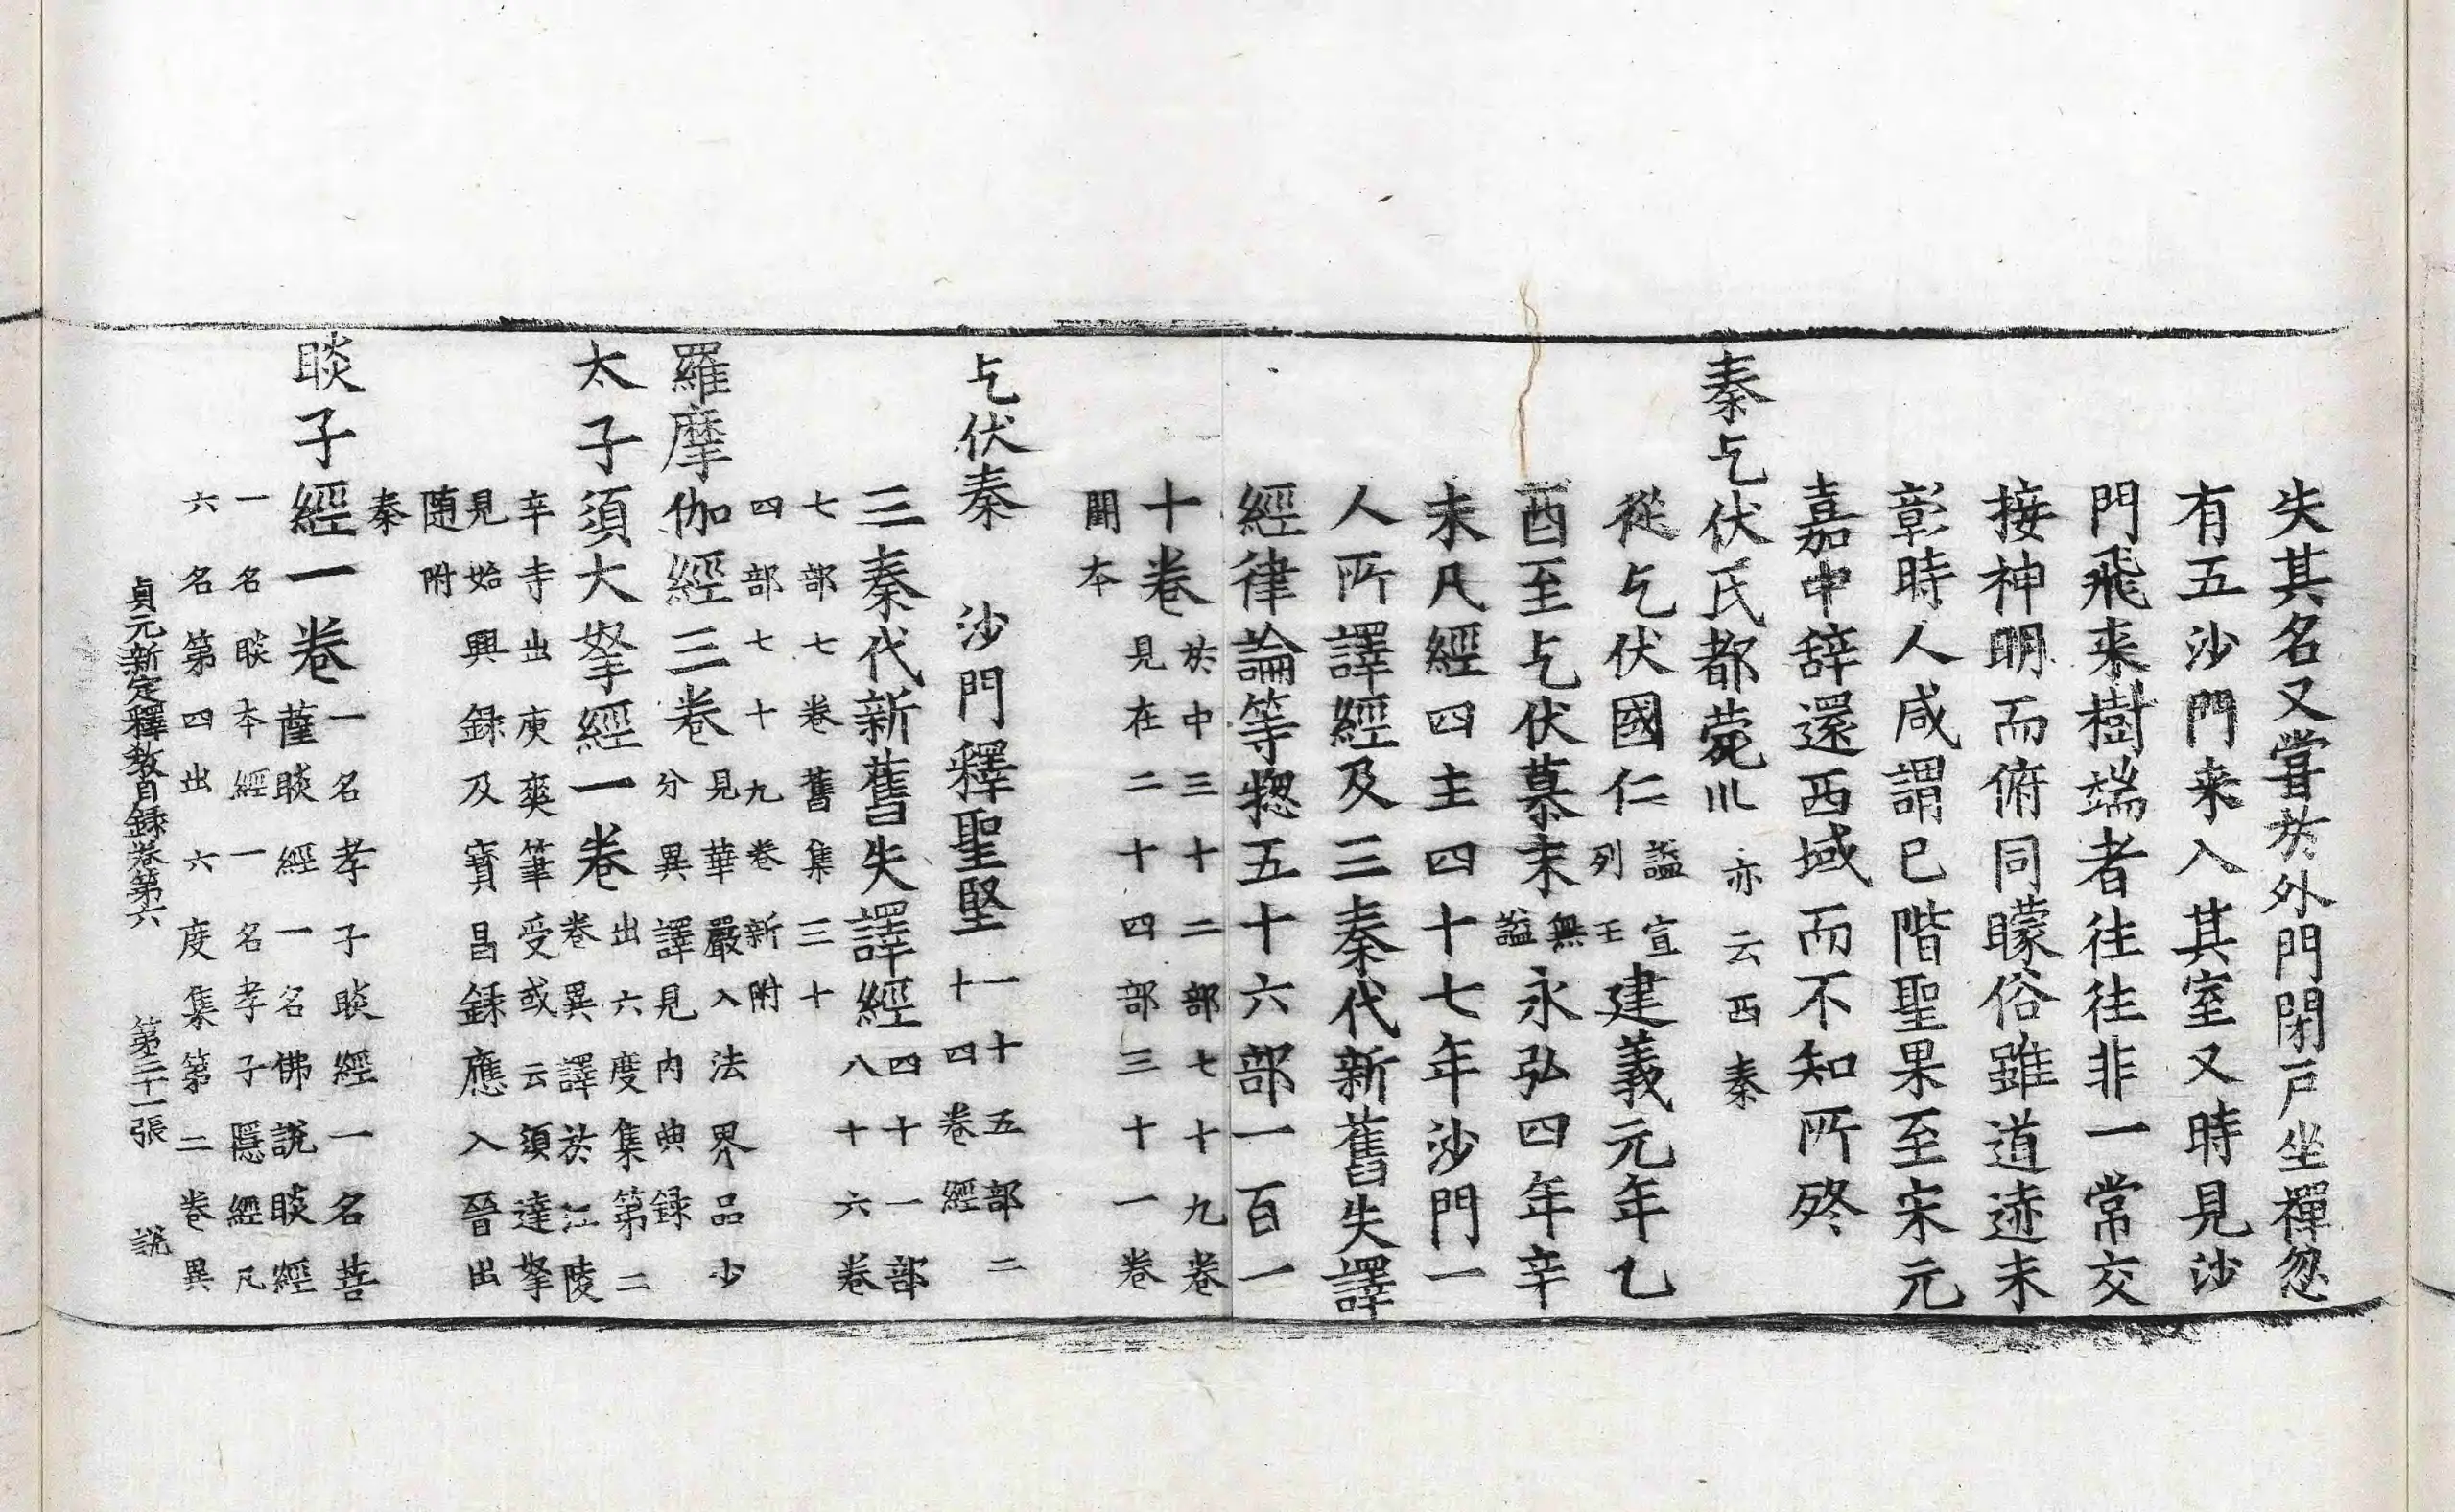 失其名又嘗於外門閉戸坐禪忽
有五沙門来入其室又時見沙
門飛来樹端者往往非一常交
接神明而俯同矇俗雖道迹未
彰時人咸謂已階聖果至宋元
嘉中辭還西域而不知所終
秦乞伏氏都菀川亦云西秦
從乞伏國仁謚宣
列王建義元年乙
酉至乞伏慕末無
謚永弘四年辛
未凡經四主四十七年沙門一
人所譯經及三秦代新舊失譯
經律論等惣五十六部一百一
十卷於中三十二部七十九卷
見在二十四部三十一卷
闕本
乞伏秦 沙門釋聖堅一十五部二
十四卷經
三秦代新舊失譯經四十一部
八十六卷
七部七卷舊集三十
四部七十九卷新附
羅摩伽經三卷見華嚴入法界品少
分異譯見内典録
太子須大拏經一卷出六度集第二
卷異譯於江陵
辛寺出庾爽筆受或云須達拏
見始興録及寳昌録應入晉出
随附
秦
睒子經一卷一名孝子睒經一名菩
薩睒經一名佛說睒經
一名睒本經一名孝子隱經凡
六名第四出六度集第二卷異
貞元新定釋教目録卷第六 第二十一張 說